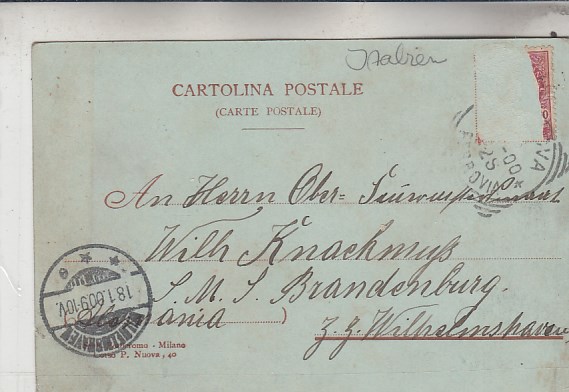 Italien
CARTOLINA POSTALE
(CARTE POSTALE)
FERROVIA
25
-00
An Herrn Ober=
Wilh Knackmuss
S. M. S. Brandenburg.
z. Z. Wilhelmshaven
18.1.00.9-10V.
WILHELMSHAVEN
- Milano
Corso P. Nuova, 40